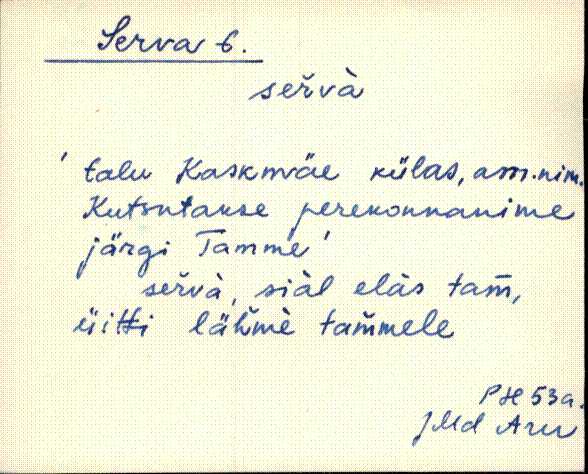 Serva t.
servà
' talu Kaskmäe külas, am.nim.
Kutsutakse perekonnanime
järgi Tamme '
servà, siàl elàs tam̆,
üitti lähmè tam̆mele
PH 53a.
JMd Aru